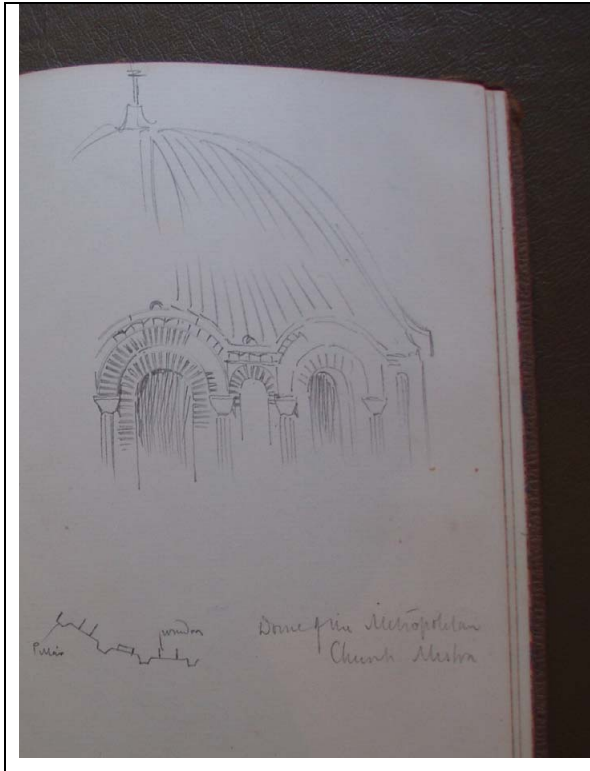 Pillar
window
Dome of the Metropolitan
Church Mistra